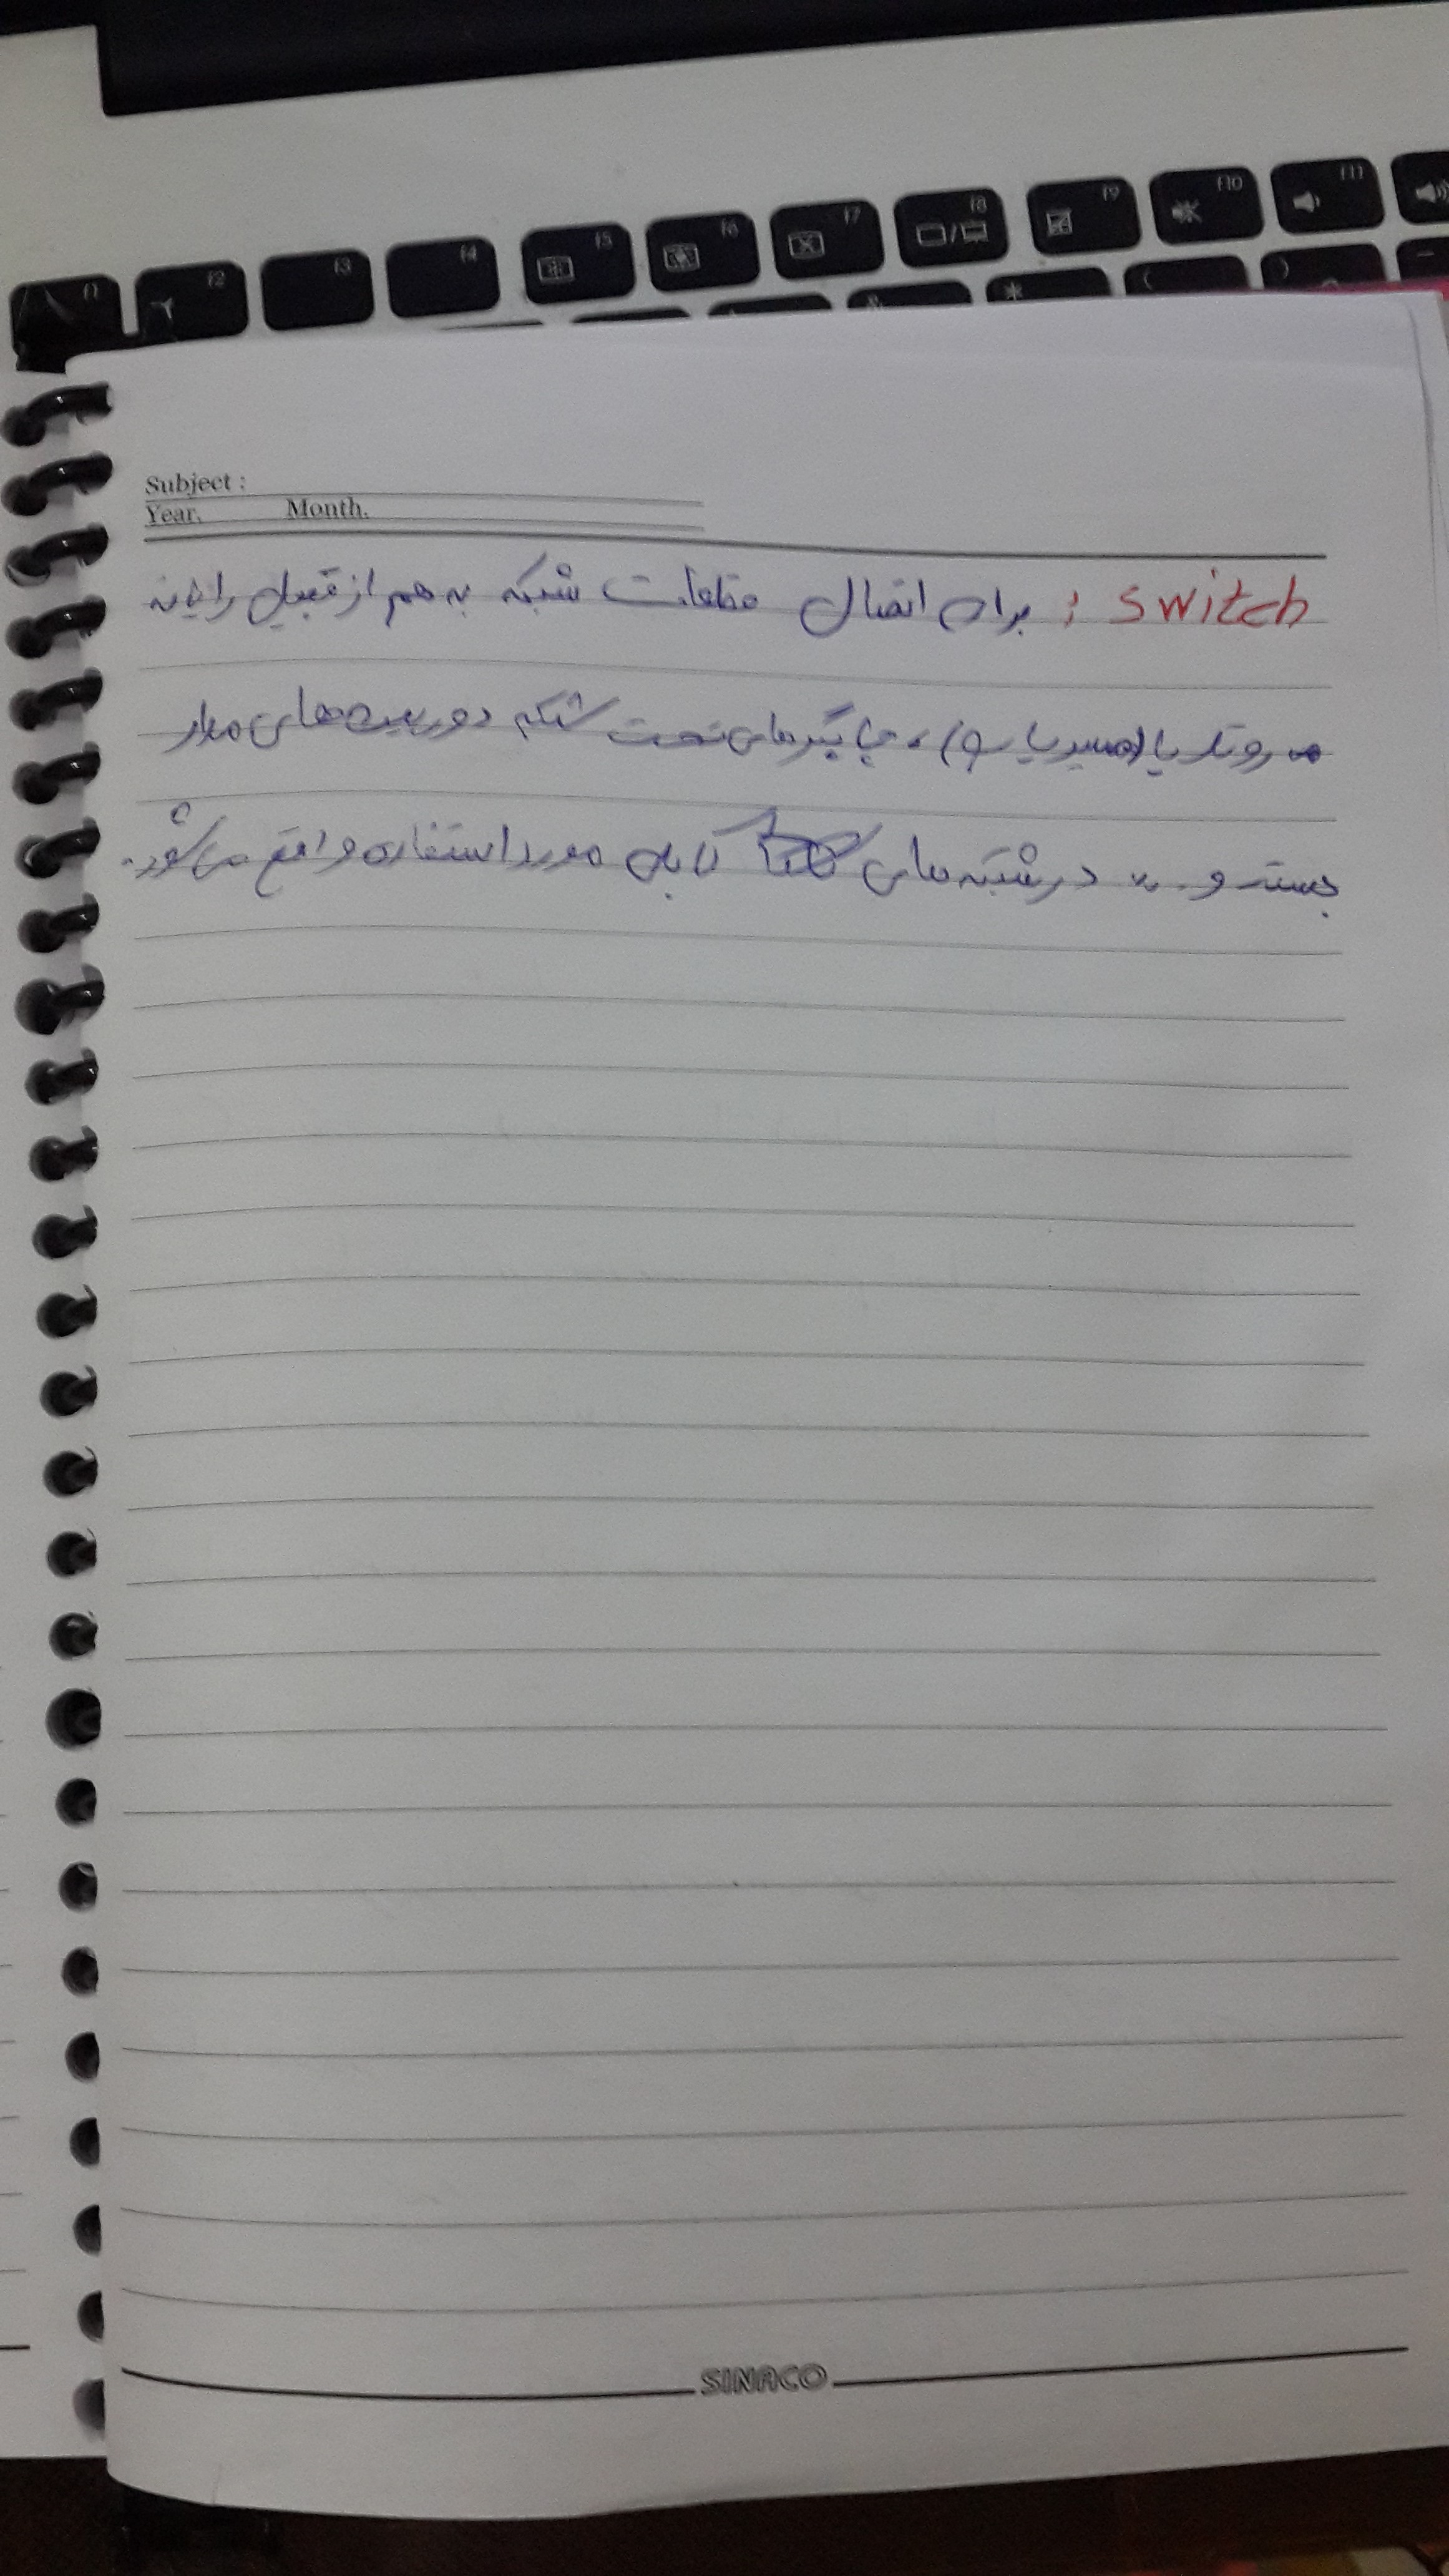 f1 f2 f3 f4 f5 f6 f7 f8 f9 f10 f11
& * ( )
Subject :
Year. Month.
Switch : برای اتصال قطعات شبکه به هم از قبیل رایانه
روتر یا (مسیریاب) ، چاپگرهای تحت شبکه دوربین‌های مدار
بسته و ... در شبکه های کابلی مورد استفاده واقع می‌شود.
SINACO